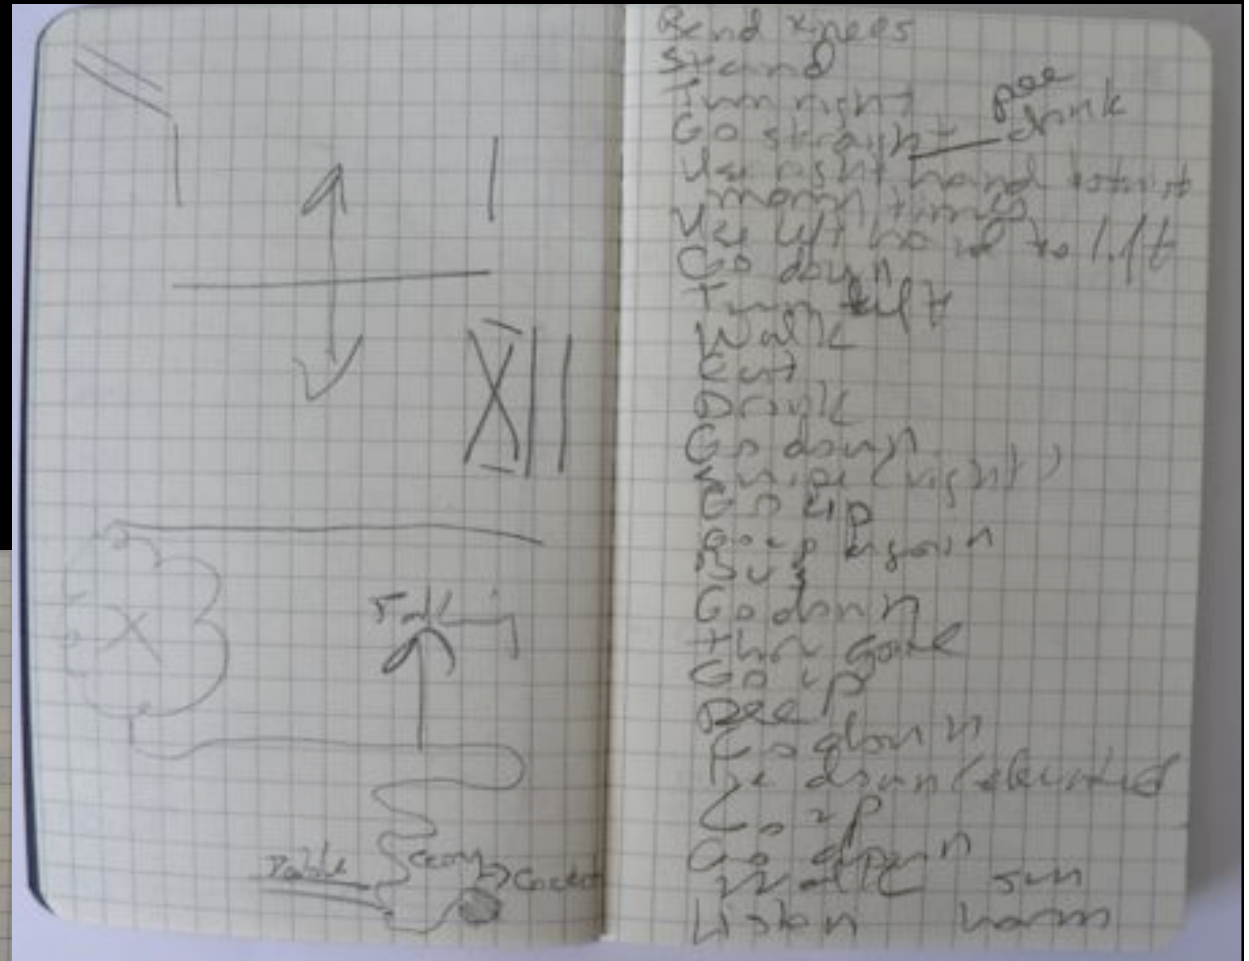 Talking
Table
Bend knees
Stand
Turn right
pee
Go straight drink
Use right hand to twist
many times
Use left hand to lift
Go down
Turn left
Walk
Eat
Drink
Go down
(right)
Go up
Go up again
Bus
Go down
then
Go up
pee
Go down
down
Go up
Go down
Walk sun
Listen warm